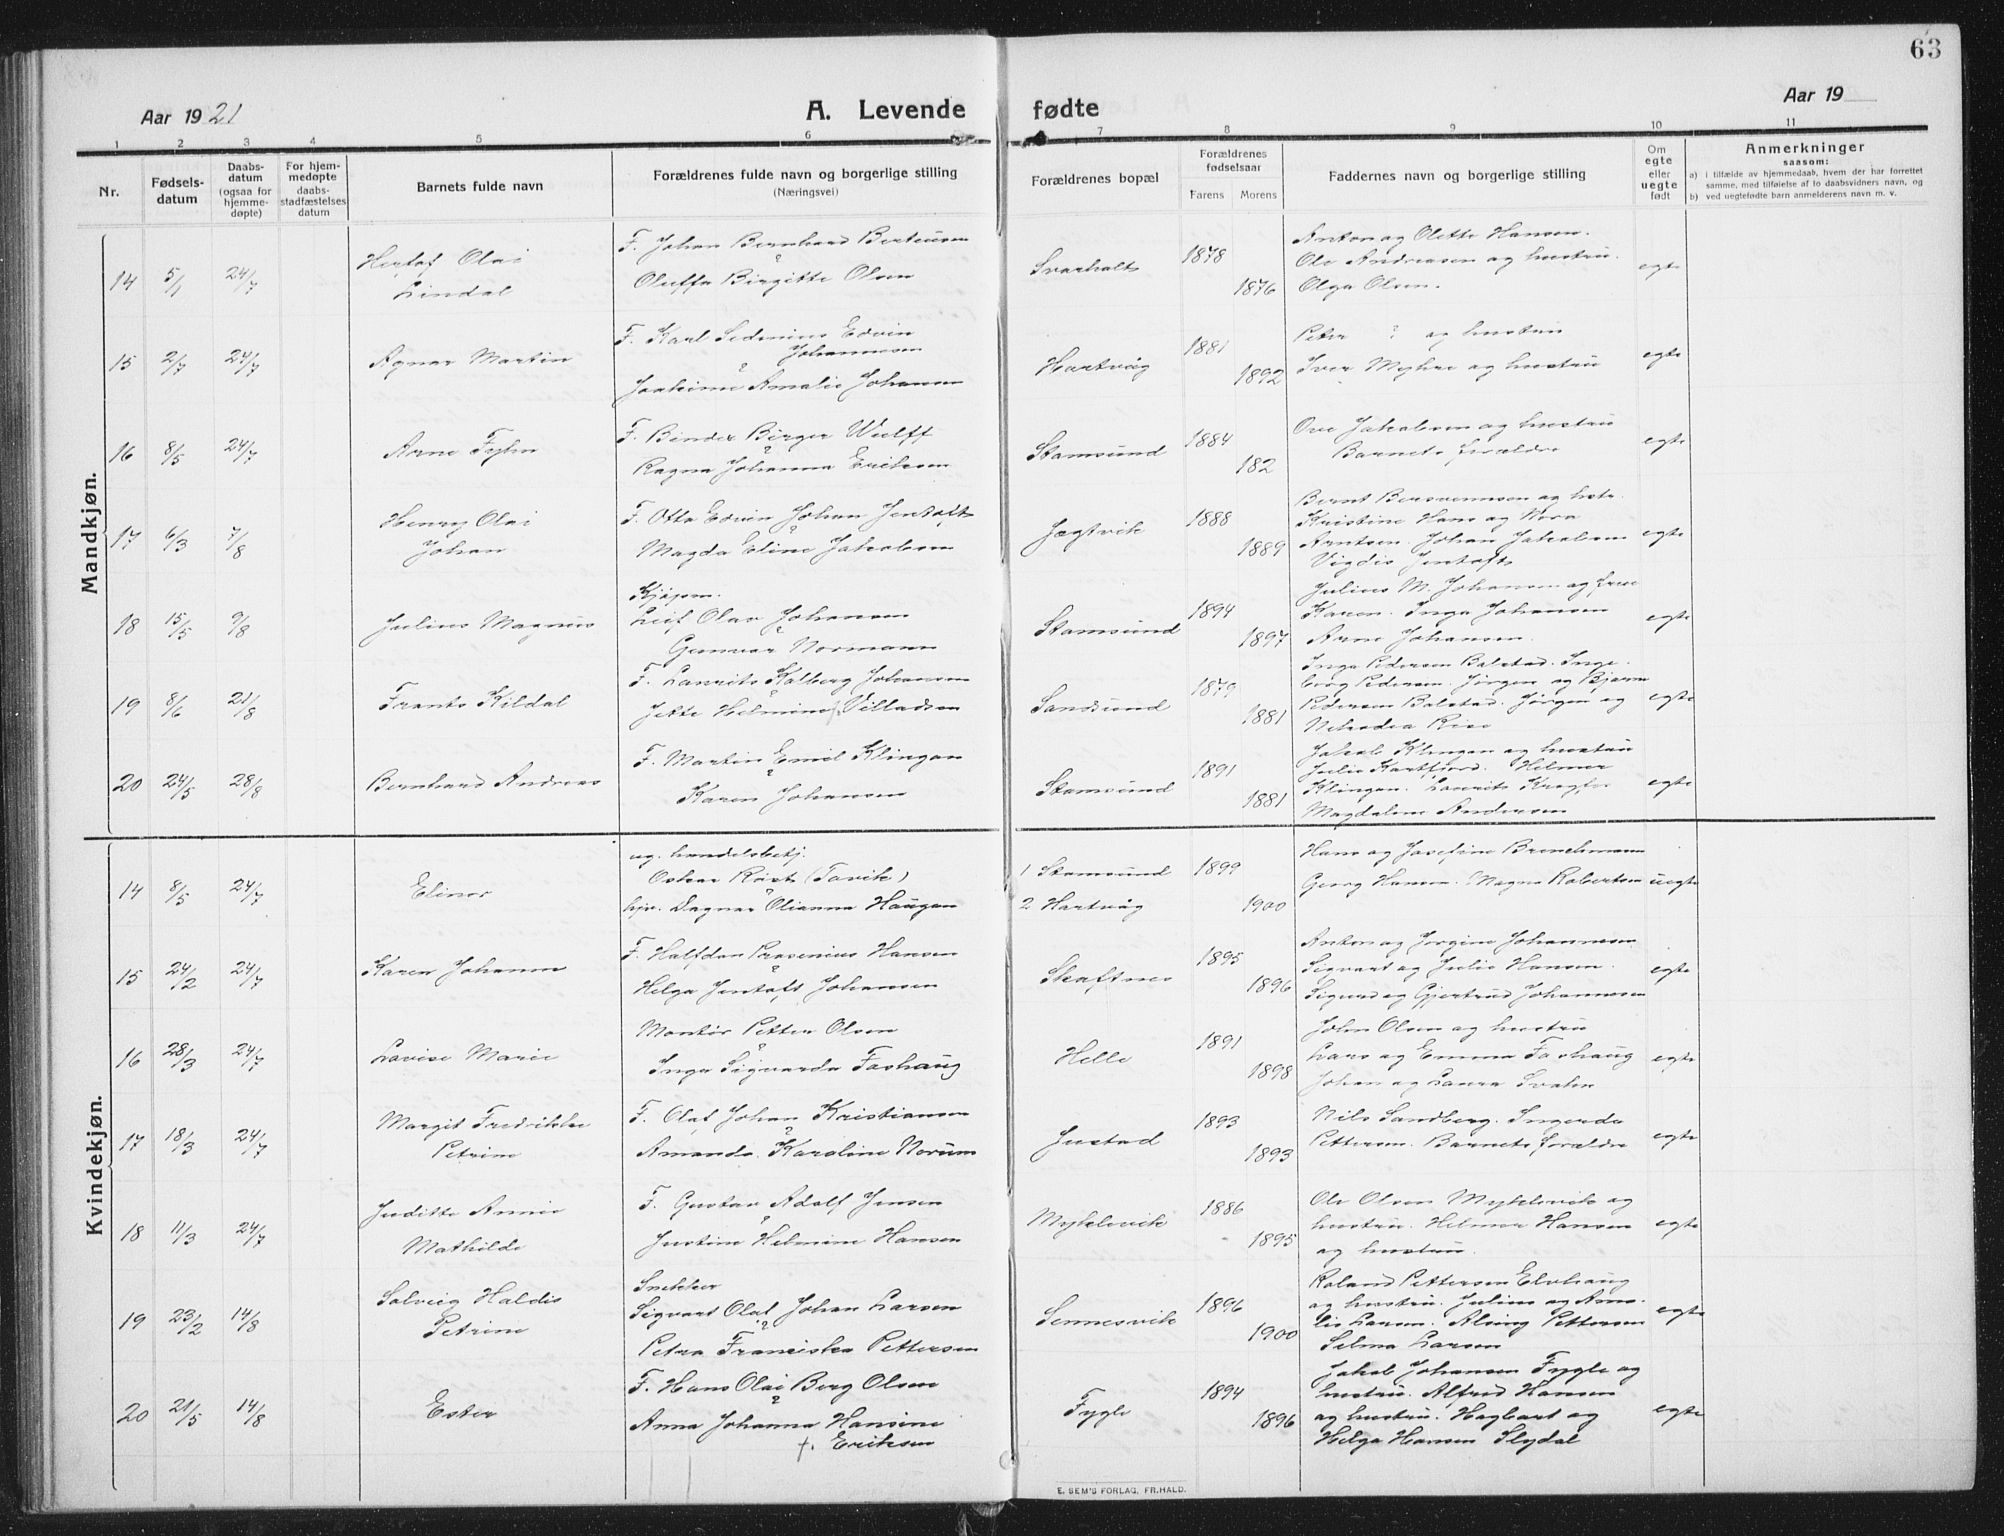 63
Aar 1921
A. Levende fødte
Aar 19
1 2 3 4 5 6 7 8 9 10 11
Nr.
Fødsels-
datum
Daabs-
datum
(ogsaa for
hjemme-
døpte)
For hjem-
medøpte
daabs-
stadfæstelses
datum
Barnets fulde navn
Forældrenes fulde navn og borgerlige stilling
(Næringsvei)
Forældrenes bopæl
Forældrenes
fødselsaar
Farens Morens
Faddernes navn og borgerlige stilling
Om
egte
eller
uegte
født
Anmerkninger
saasom:
a) i tilfælde av hjemmedaab, hvem der har forrettet
samme, med tilføielse af to daabsvidners navn, og
b) ved uegtefødte barn anmelderens navn m. v.
Mandkjøn.
14 5/1 24/7
Olai
Lindal
F. Johan Bernhard Berteusen
&
Oluffa Birgitte Olsen
Svarholt
1878
1876
Anton og Olette Hansen.
Ole Andreasen og hustru.
Olga Olsen.
egte
15 2/7 24/7
Agnar Martin
F. Karl Sedenius Edvin
Johannesen
&
Joakime Amalie Johansen
Hartvåg
1881
1892
Peter ? og hustru
Iver Myhre og hustru
egte
16 8/5 24/7
Arne Fyhn
F. Binder Birger Wulff
&
Ragna Johanna Eriksen
Stamsund
1884
182
Ove Jakobsen og hustru
Barnets forældre
egte
17 6/3 7/8
Henry Olai
Johan
F. Otto Edvin Johan Jentoft
&
Magda Eline Jakobsen
Jægtvik
1888
1889
Bernt Bersvennsen og hstr.
Kristine Hans og Nora
Arntsen. Johan Jakobsen
Vigdis Jentoft
egte
18 15/5 9/8
Julius Magnus
Kjøpm.
Leif Olav Johansen
&
Gunvar Normann
Stamsund
1894
1897
Julius M. Johansen og frue
Karen. Inga Johansen
Arne Johansen.
egte
19 8/6 21/8
Frants Kildal
F. Laurits Kolberg Johansen
&
Jette Helmine f. Villadsen
Sandsund
1879
1881
Inga Pedersen Balstad. Inge-
borg Pedersen. Jørgen og Bjarne
Pedersen Balstad. Jørgen og
Rise
egte
20 24/5 28/8
Bernhard Andreas
F. Martin Emil Klingan
&
Karen Johansen
Stamsund
1891
1881
Jakob Klingan og hustru
Julie Hartfjord. Helmer
Klingan. Laurits
Magdalene Andersen
egte
Kvindekjøn.
14 8/5 24/7
Elinor
ug. handelsbetj.
Oskar Røst (Tavik)
&
hjv. Dagnar Olianna Haugan
1 Stamsund
2 Hartvåg
1899
1900
Hans og Josefine Brinchmann
Georg Hansen. Magna Robertsen
uegte
15 24/2 24/7
Karen Johanne
F. Halfdan Prasenius Hansen
&
Helga Jentoft Johansen
Skaftnes
1895
1896
Anton og Jorgine Johannesen
Sigvart og Julie Hansen.
Sigurd og Gjertrud Johannesen
egte
16 28/3 24/7
Lovise Marie
Montør Petter Olsen
&
Inga Sigvarda Foshaug
Helle
1891
1898
John Olsen og hustru
Lars og Emma Foshaug
Johan og Laura Svahn
egte
17 18/3 24/7
Margit Fredrikke
Petrine
F. Olaf Johan Kristiansen
&
Amanda Karoline Norum
Justad
1893
1893
Nils Sandberg. Ingerda
Pettersen. Barnets forældre
egte
18 11/3 24/7
Juditte Annie
Mathilde
F. Gustav Adolf Jensen
&
Justine Helmine Hansen
Myklevik
1886
1895
Ole Olsen Myklevik og
hustru. Helmer Hansen
og hustru.
egte
19 23/2 14/8
Solveig Haldis
Petrine
Snekker
Sigvart Olaf Johan Larsen
&
Petra Franciska Pettersen
Sennesvik
1896
1900
Roland Pettersen Elvhaug
og hustru. Julius og Ama-
lie Larsen. Alsing Pettersen
Selma Larsen
egte
20 21/5 14/8
Ester
F. Hans Olai Berg Olsen
&
Anna Johanna Hansine
f. Eriksen
Fygle
1894
1896
Jakob Johansen Fygle og
hustru. Alfred Hansen
og hustru. Hagbart og
Helga Hansen Slydal
egte
E. SEM'S FORLAG, FR.HALD.